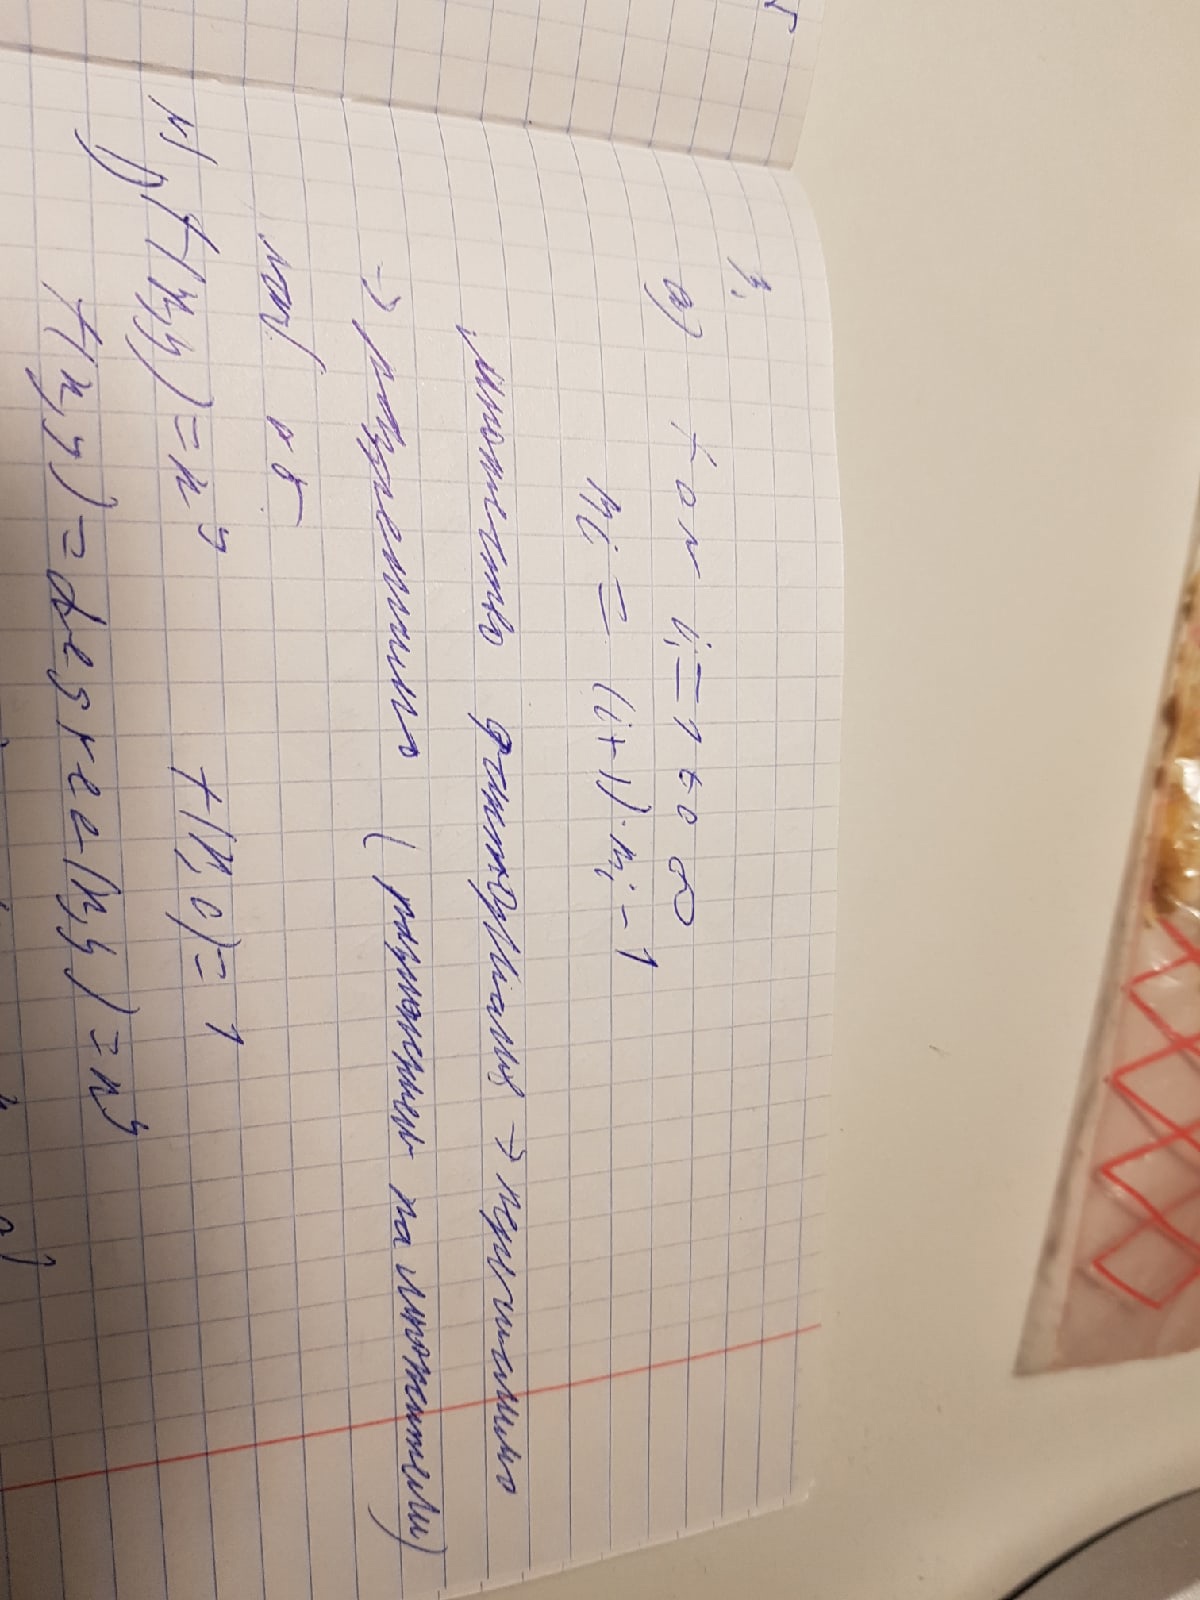 3.
a) for i = 1 to ∞
n_i = (i+1) · n_i - 1
множество факториалов → перечислимо
→ разрешимо ( разложением на множители)
N1
1) f(x,y) = x^y f(x,0) = 1
f(x,y) = degree(x,y) = x^y